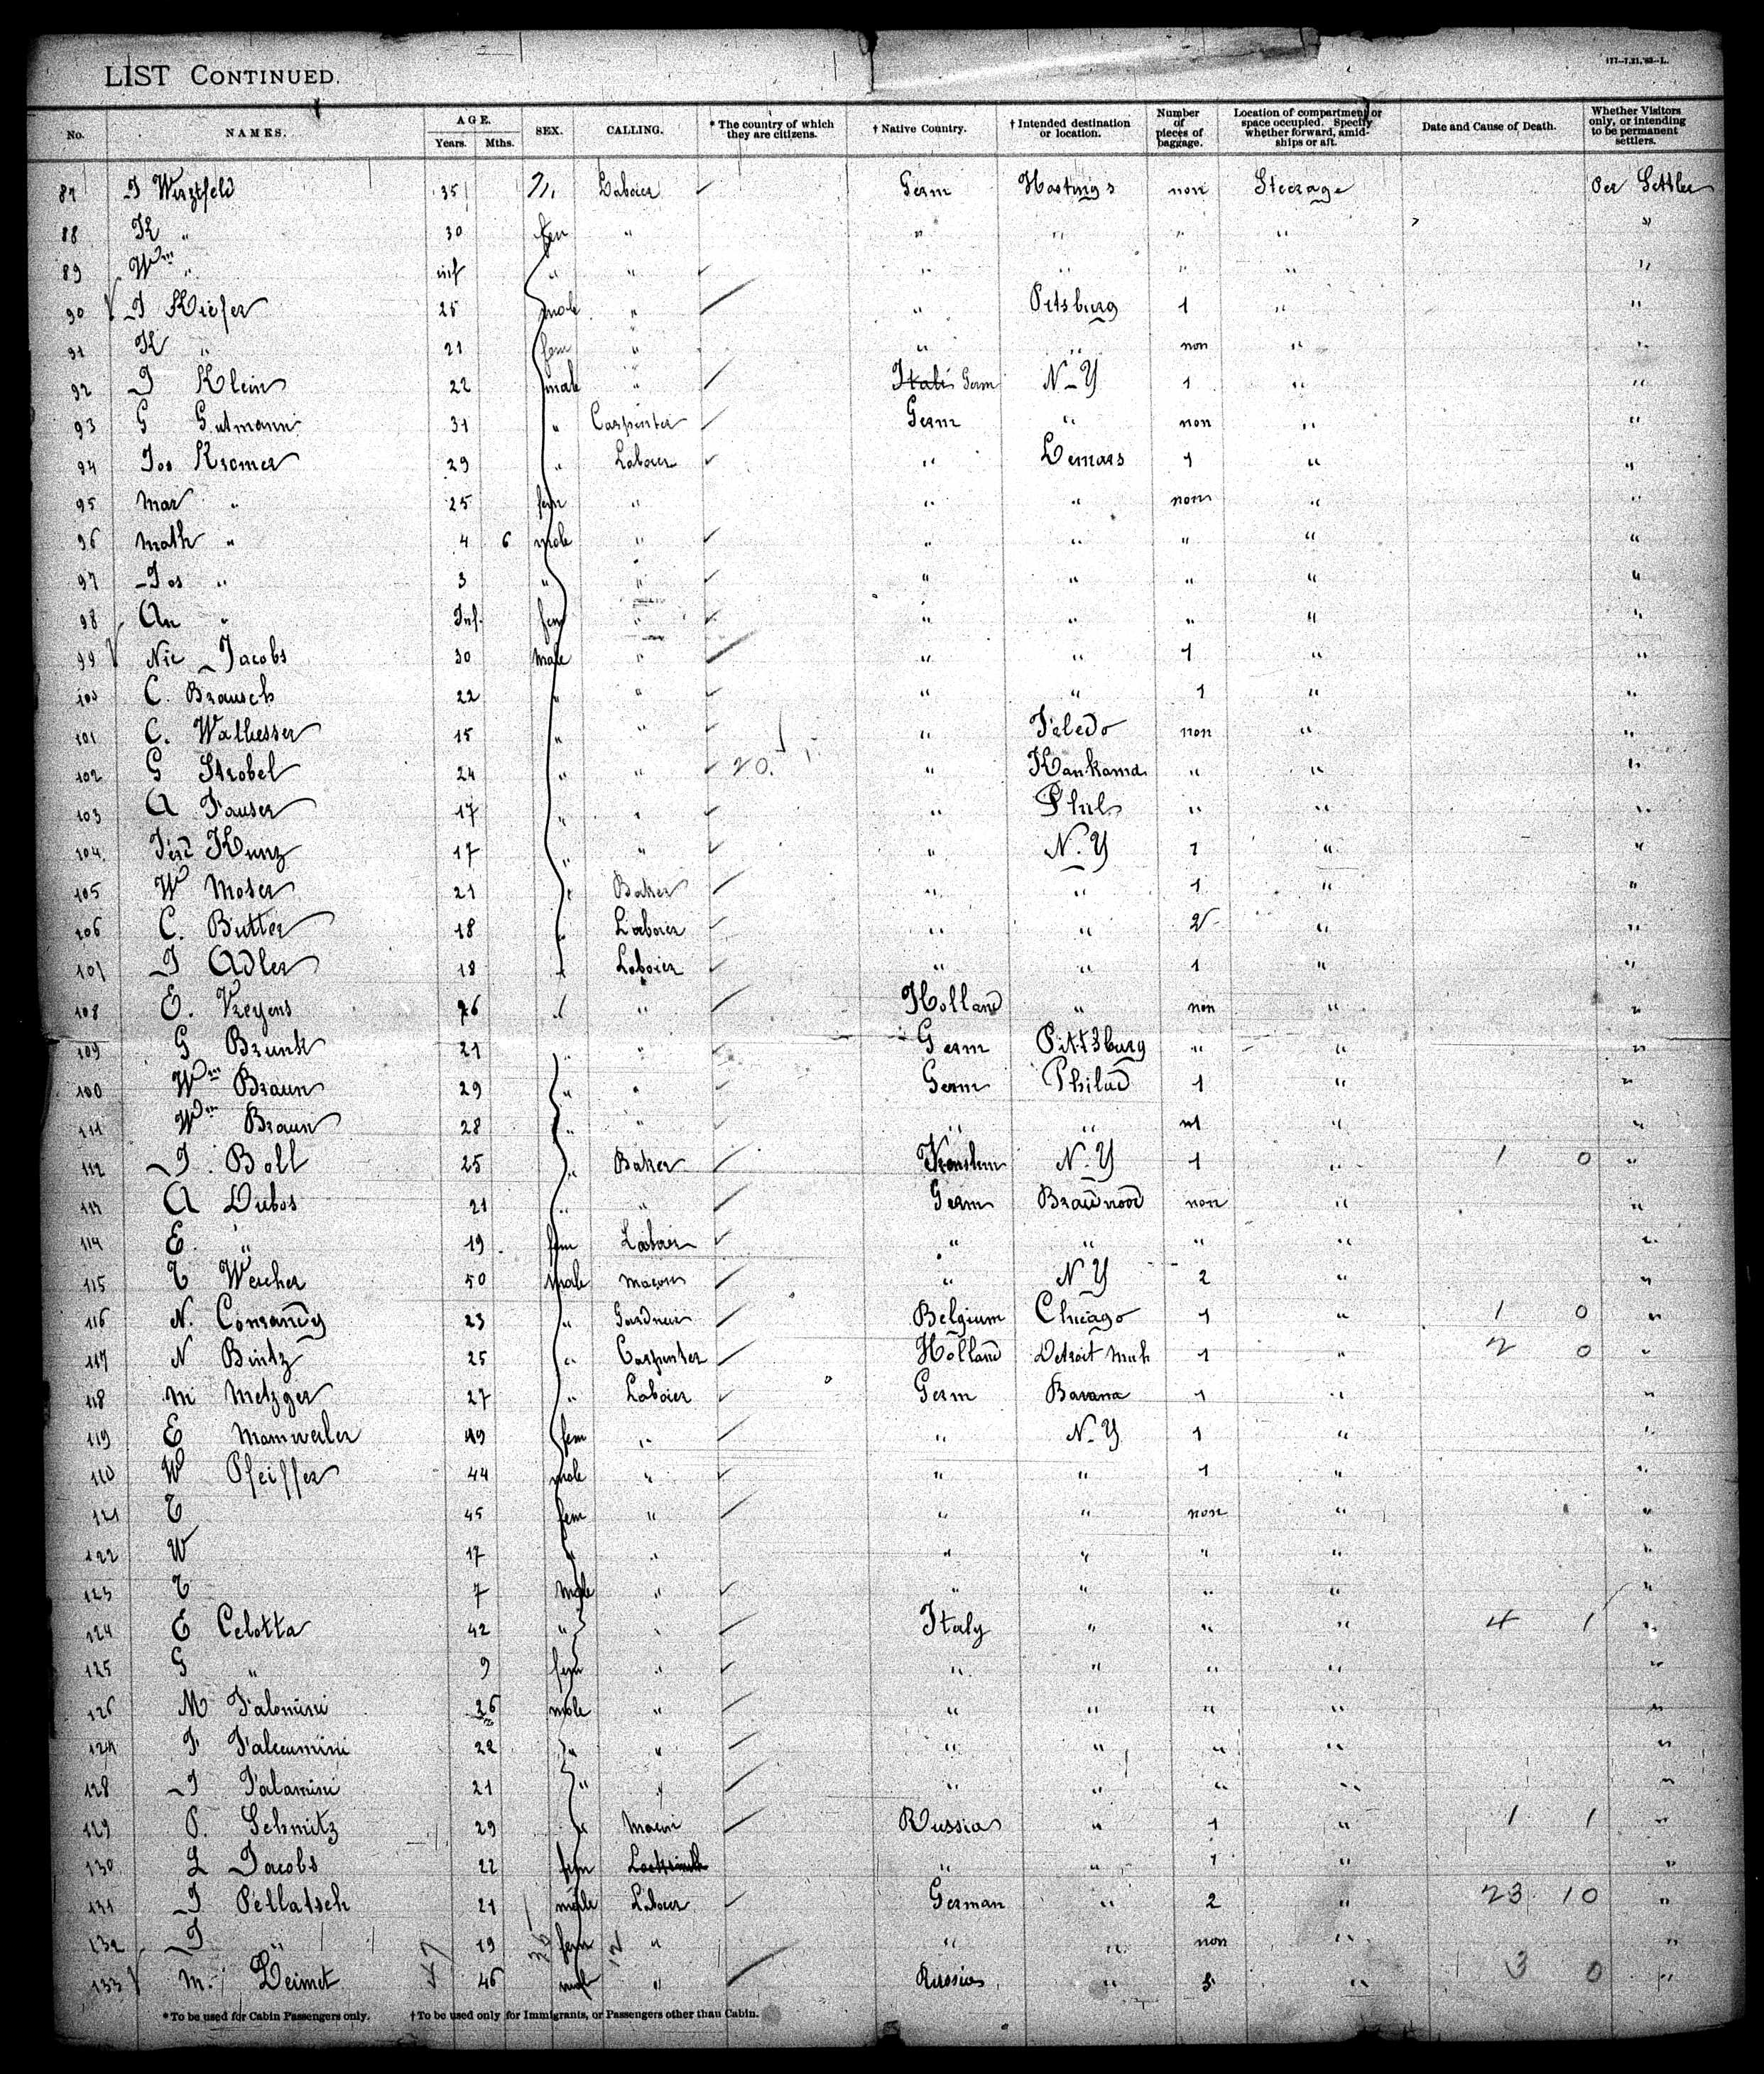 LIST CONTINUED.
177-7.21.'88-L.
No. NAMES. AGE. Years. Mths. SEX. CALLING. * The country of which they are citizens. † Native Country. † Intended destination or location. Number of pieces of baggage. Location of compartment or space occupied. Specify whether forward, amidships or aft. Date and Cause of Death. Whether Visitors only, or intending to be permanent settlers.
87 J Wirztfeld 35 M. Laborer Germ Hastings non Steerage Per Settler
88 K " 30 fem " " " " " "
89 Wm " inf " " " " " " "
90 J Kiefer 25 male " " Pitsburg 1 " "
91 K " 21 fem " " " non " "
92 J Klein 22 male " Itali Germ N-Y 1 " "
93 G Gutmann 31 " Carpenter Germ " non " "
94 Jos Kromer 29 " Laborer " Lemars 1 " "
95 Mar " 25 fem " " " non " "
96 Math " 4 6 male " " " " " "
97 Jos " 3 " " " " " " "
98 An " Inf. fem " " " " " "
99 Nic Jacobs 30 Male " " " 1 " "
100 C. Brausch 22 " " " " 1 " "
101 C. Walhesser 15 " " " Toledo non " "
102 G Strobel 24 " " 20. " Kankama " " "
103 A Fauser 17 " " " Phil " " "
104 Ferd Kunz 17 " " " N.Y 1 " "
105 W Moser 21 " Baker " " 1 " "
106 C. Butter 18 " Laborer " " 2 " "
107 J Adler 18 " Laborer " " 1 " "
108 E. Kreyens 26 " " Holland " non " "
109 G Brunk 21 " " Germ Pittsburg " " "
100 Wm Braun 29 " " Germ Philad 1 " "
111 Wm Braun 28 " " " " " "
112 J. Boll 25 " Baker N.Y 1 " 1 0 "
113 A Dubos 21 " " Germ Braidwood non " "
114 E. " 19 fem Laborer " " " " "
115 E Wercher 50 Male Mason " N Y 2 " "
116 N. Conrandy 23 " Gardner Belgium Chicago 1 " 1 0 "
117 N Bintz 25 " Carpenter Holland Detroit Mich 1 " 2 0 "
118 M Metzger 27 " Laborer Germ Bavana 1 " "
119 E Mamweiler 49 fem " " N-Y 1 " "
110 W Pfeiffer 44 male " " " 1 " "
121 E 45 fem " " " non " "
122 W 17 " " " " " " "
123 E 7 Male " " " " " "
124 E Celotta 42 " " Italy " " " 4 1 "
125 G " 9 fem " " " " " "
126 M Talomini 26 male " " " " " "
127 F Talcumini 22 " " " " " " "
128 J Talamini 21 " " " " " " "
129 P. Schmitz 29 " Mason Russia " 1 " 1 1 "
130 L Jacobs 22 fem Locksmith " " 1 " "
131 J Pellatsch 21 male Laborer German " 2 " 23 10 "
132 J " 19 fem " " " non " "
133 M. Deimet 47 46 male 36 12 " Russia " " 3 0 "
* To be used for Cabin Passengers only. † To be used only for Immigrants, or Passengers other than Cabin.